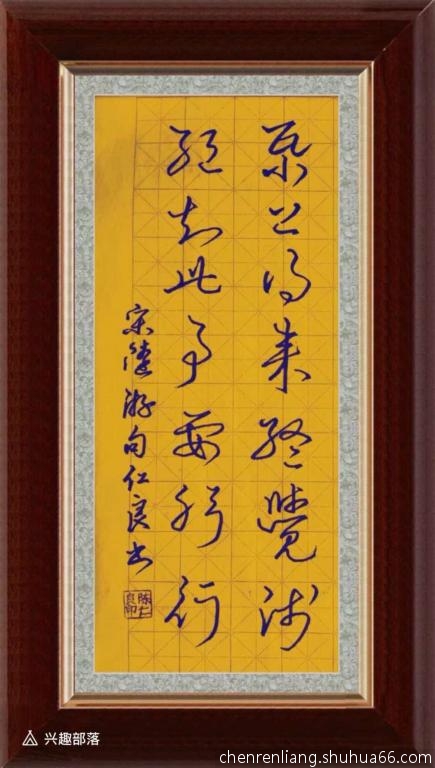 纸上得来终觉浅
绝知此事要躬行
宋陸游句仁良书
陈仁良印
兴趣部落
chenrenliang.shuhua66.com